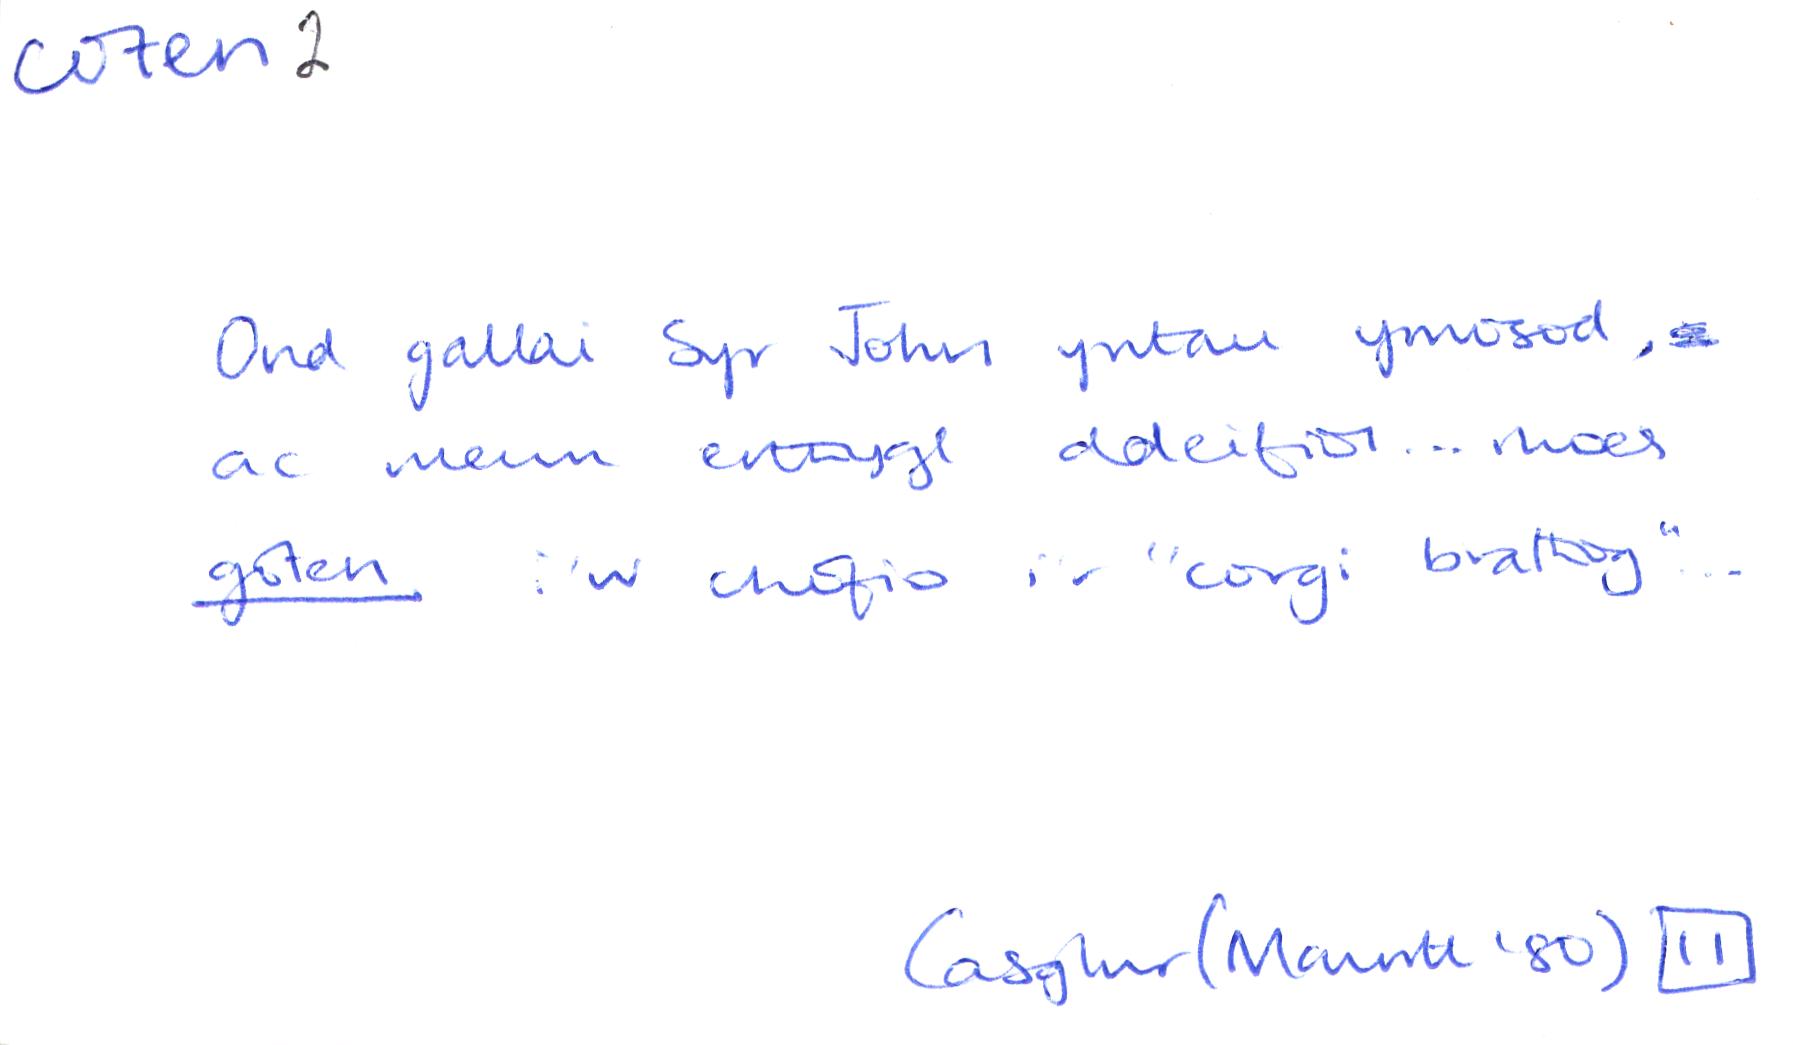 coten 2
Ond gallai Syr John yntau ymosod,
ac mewn erthygl ddeifiol... rhoes
goten i'w chofio i'r "corgi brathog"...
Casglwr (Mawrth '80) 11